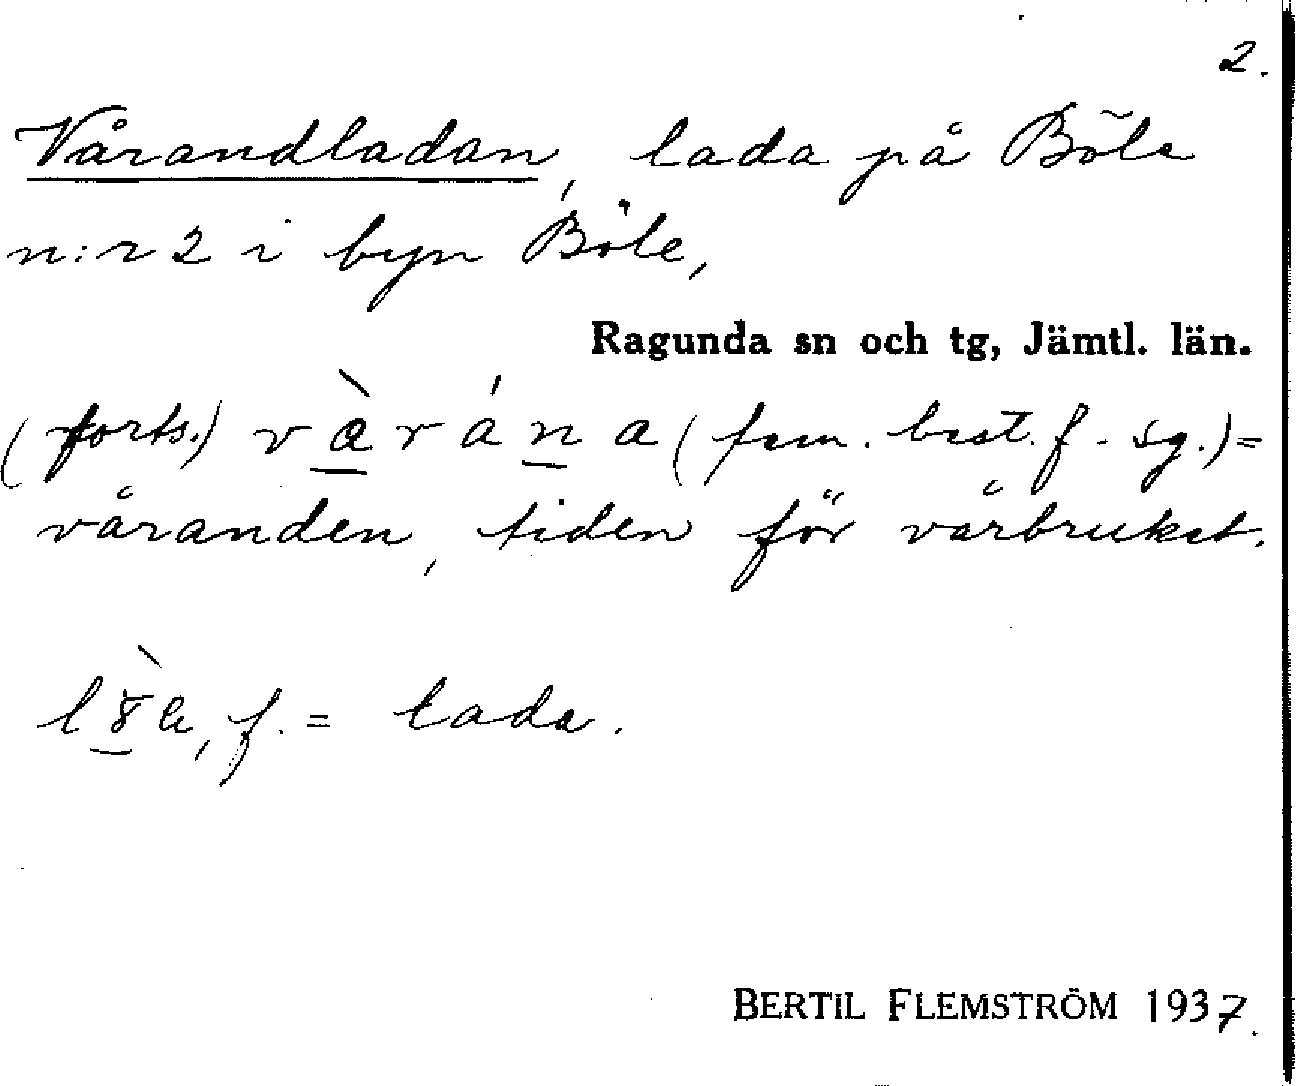 2.
Vårandladan, lada på Böle
n:r 2 i byn Böle,
Ragunda sn och tg, Jämtl. län.
(forts.) v à̲ r á n̲ a (fem. best. f. sg.) =
våranden, tiden för vårbruket.
f. = lada.
BERTIL FLEMSTRÖM 1937.